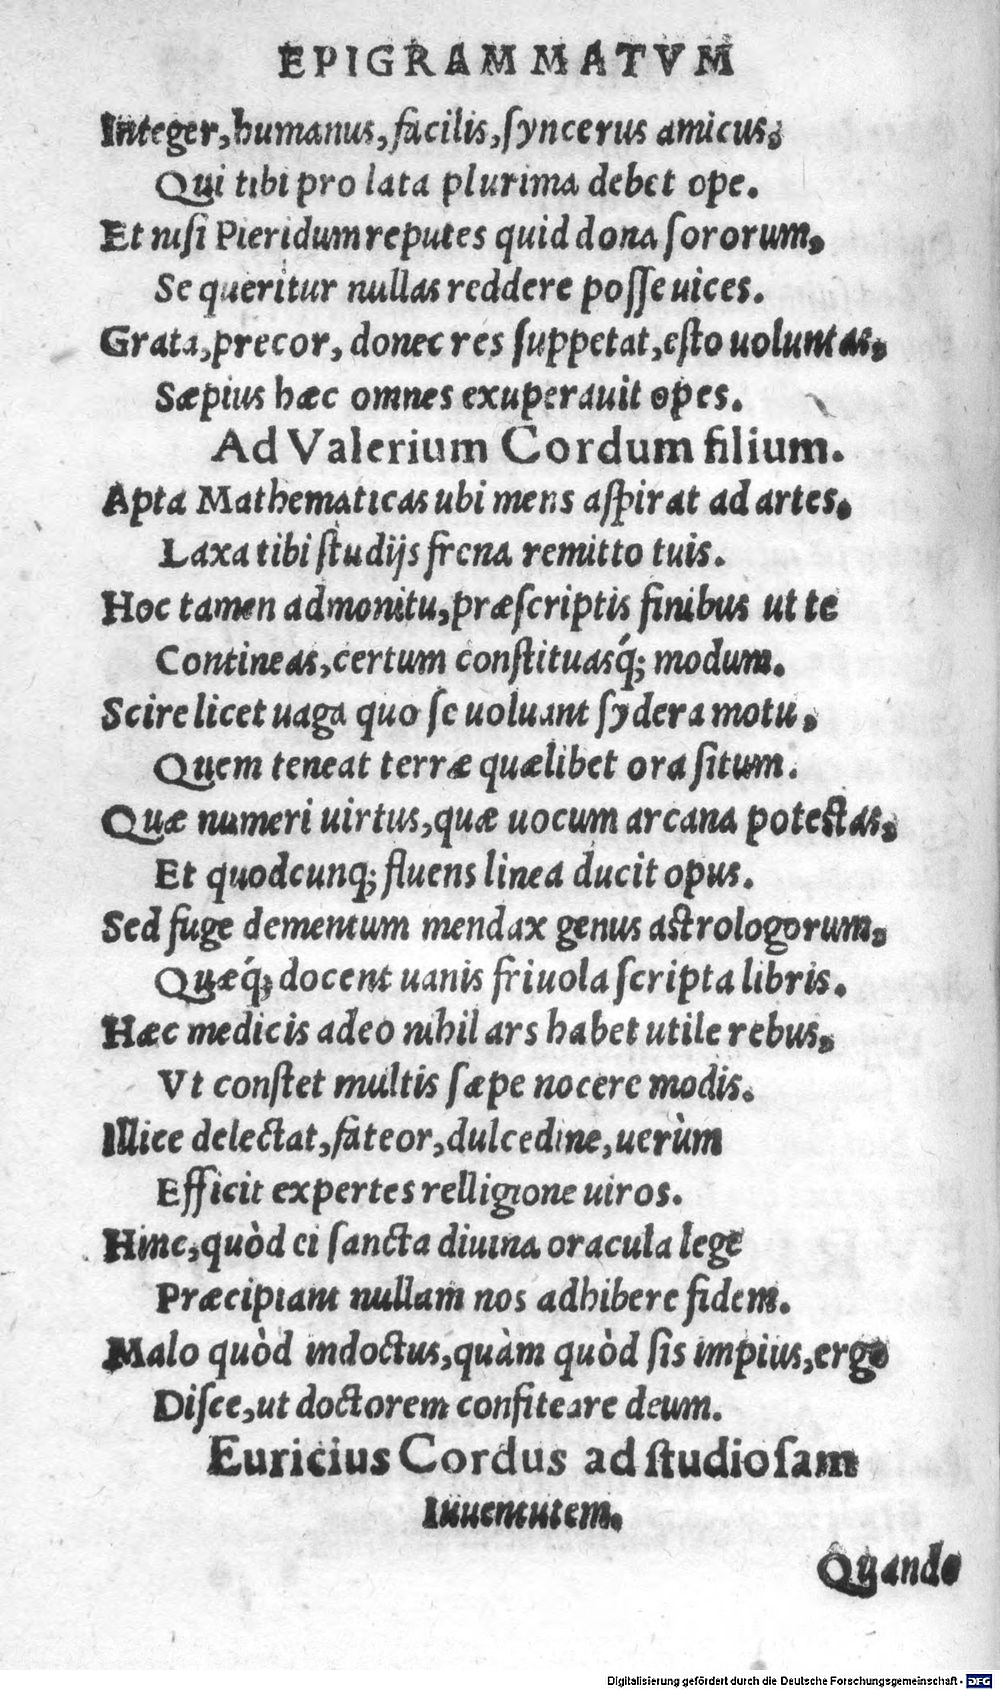 EPIGRAMMATVM
Integer, humanus, facilis, ſyncerus amicus,
Qui tibi pro lata plurima debet ope.
Et niſi Pieridum reputes quid dona ſororum,
Se queritur nullas reddere poſſe uices.
Grata, precor, donec res ſuppetat, eſto uoluntas,
Sæpius hæc omnes exuperauit opes.
Ad Valerium Cordum filium.
Apta Mathematicas ubi mens aſpirat ad artes,
Laxa tibi ſtudijs frena remitto tuis.
Hoc tamen admonitu, præſcriptis finibus ut te
Contineas, certum conſtituasq́; modum.
Scire licet uaga quo ſe uoluant ſydera motu,
Quem teneat terræ quælibet ora ſitum.
Quæ numeri uirtus, quæ uocum arcana poteſtas,
Et quodcunq; fluens linea ducit opus.
Sed fuge dementum mendax genus aſtrologorum,
Quæq́; docent uanis friuola ſcripta libris.
Hæc medicis adeo nihil ars habet utile rebus,
Vt conſtet multis ſæpe nocere modis.
Illice delectat, fateor, dulcedine, uerùm
Efficit expertes relligione uiros.
Hinc, quòd ei ſancta diuina oracula lege
Præcipiant nullam nos adhibere fidem.
Malo quòd indoctus, quàm quòd ſis impius, ergo
Diſce, ut doctorem confiteare deum.
Euricius Cordus ad ſtudioſam
Iuuentutem.
Quando
Digitalisierung gefördert durch die Deutsche Forschungsgemeinschaft - DFG